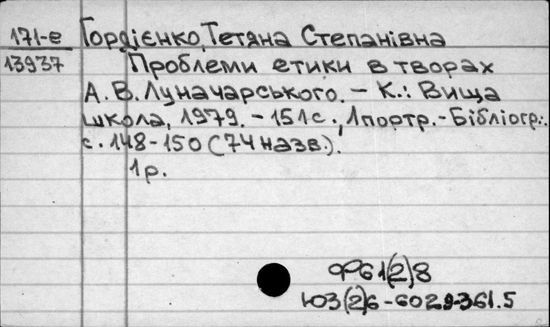 171-е Гордієнко, Тетяна Степанівна
13937 Проблеми етики в творах
А. В. Луначарського. – К.: Вища
школа, 1979. – 151с., 1портр. – Бібліогр.:
с. 148-150 (74 назв.).
1р.
Ф61(2)8
Ю3(2)6-6029-361.5